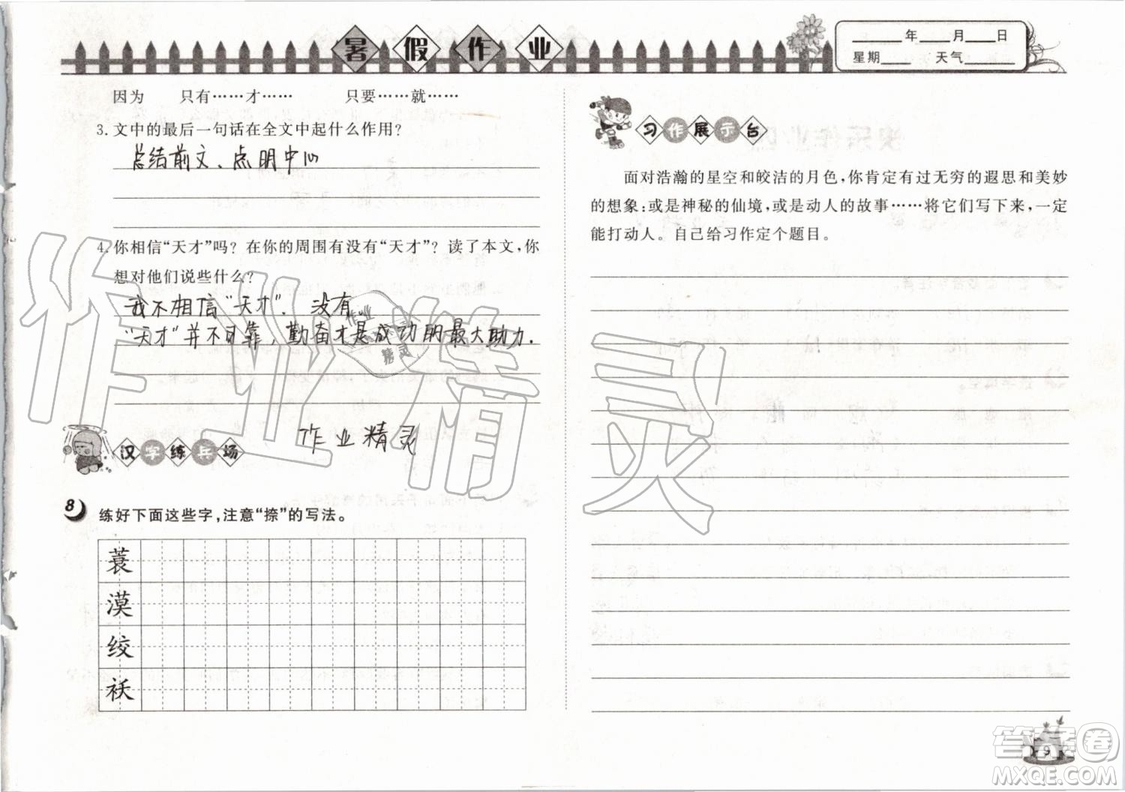 暑假作业
____年____月____日
星期____ 天气____
因为 只有……才…… 只要……就……
3. 文中的最后一句话在全文中起什么作用?
总结前文、点明中心
4. 你相信“天才”吗? 在你的周围有没有“天才”? 读了本文,你
想对他们说些什么?
我不相信“天才”. 没有
“天才”并不可靠,勤奋才是成功的最大助力.
作业精灵
汉字练兵场
8 练好下面这些字,注意“捺”的写法。
蓑
漠
绞
袄
习作展示台
面对浩瀚的星空和皎洁的月色,你肯定有过无穷的遐思和美妙
的想象:或是神秘的仙境,或是动人的故事……将它们写下来,一定
能打动人。自己给习作定个题目。
作业精灵
作业
精灵
9
答案圈
MXQE.COM